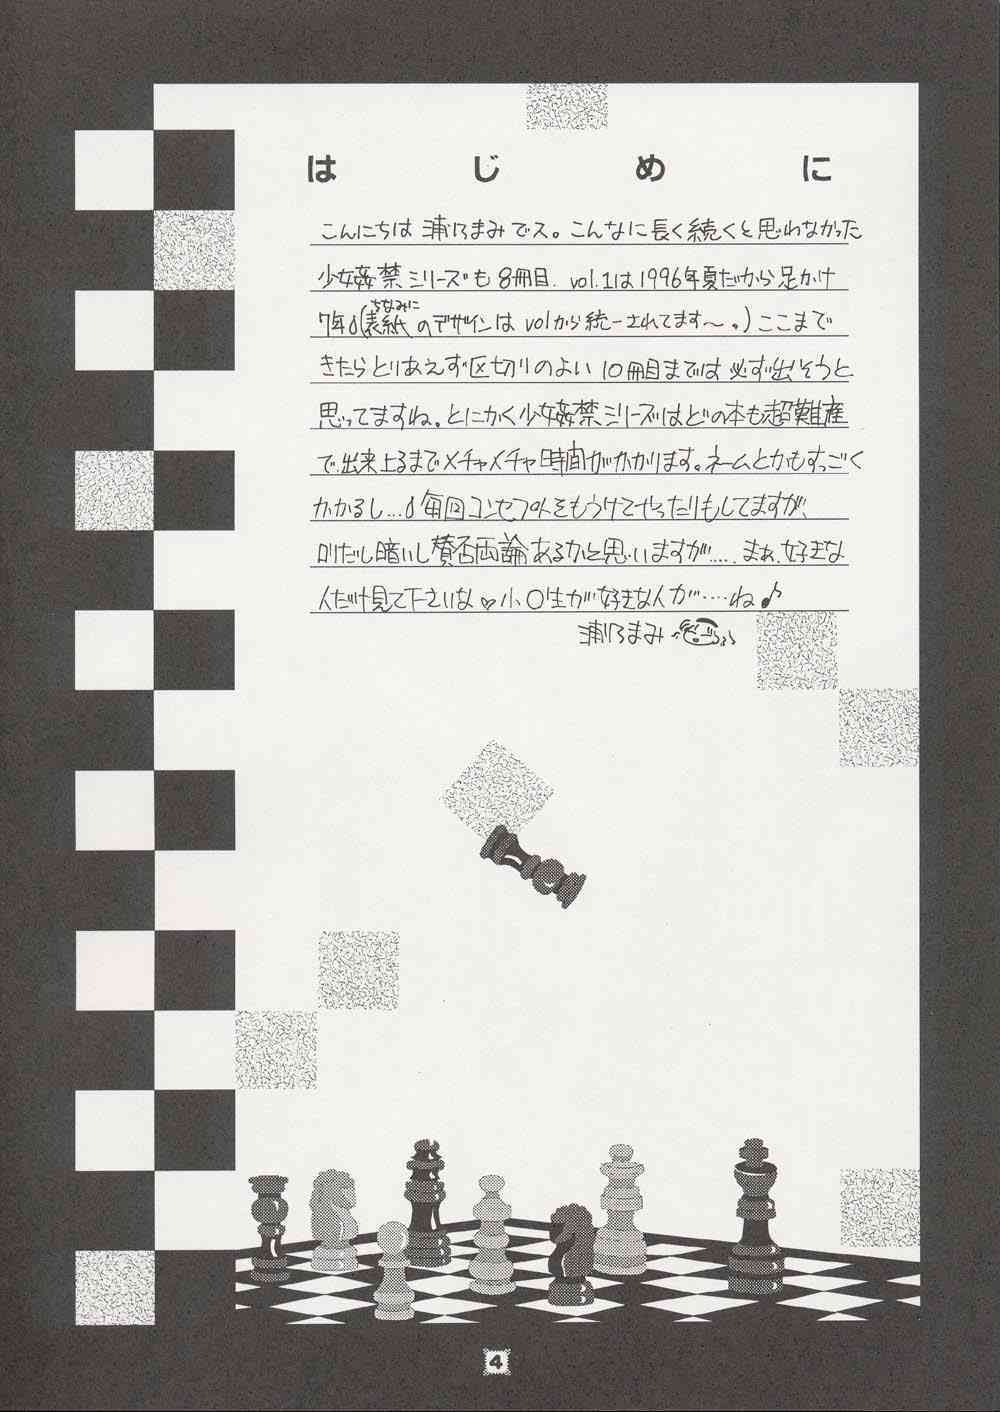 はじめに
こんにちは 浦乃まみでス。こんなに長く続くと思わなかった
少女姦禁シリーズも8冊目. vol.1は1996年夏だから足かけ
7年(ちなみに表紙のデザインは vol1から統一されてます〜。)ここまで
きたらとりあえず区切りのよい 10冊目までは必ず出そうと
思ってますね。とにかく少女姦禁シリーズはどの本も超難産
で.出来上るまでメチャメチャ時間がかかります。ネームとかもすっごく
かかるし…毎回コンセプトをもうけてやったりもしてますが、
暗いし賛否両論あるかと思いますが…. まぁ.好きな
人だけ見て下さいな♡小○生が好きな人が‥‥ね♪
浦乃まみ
4